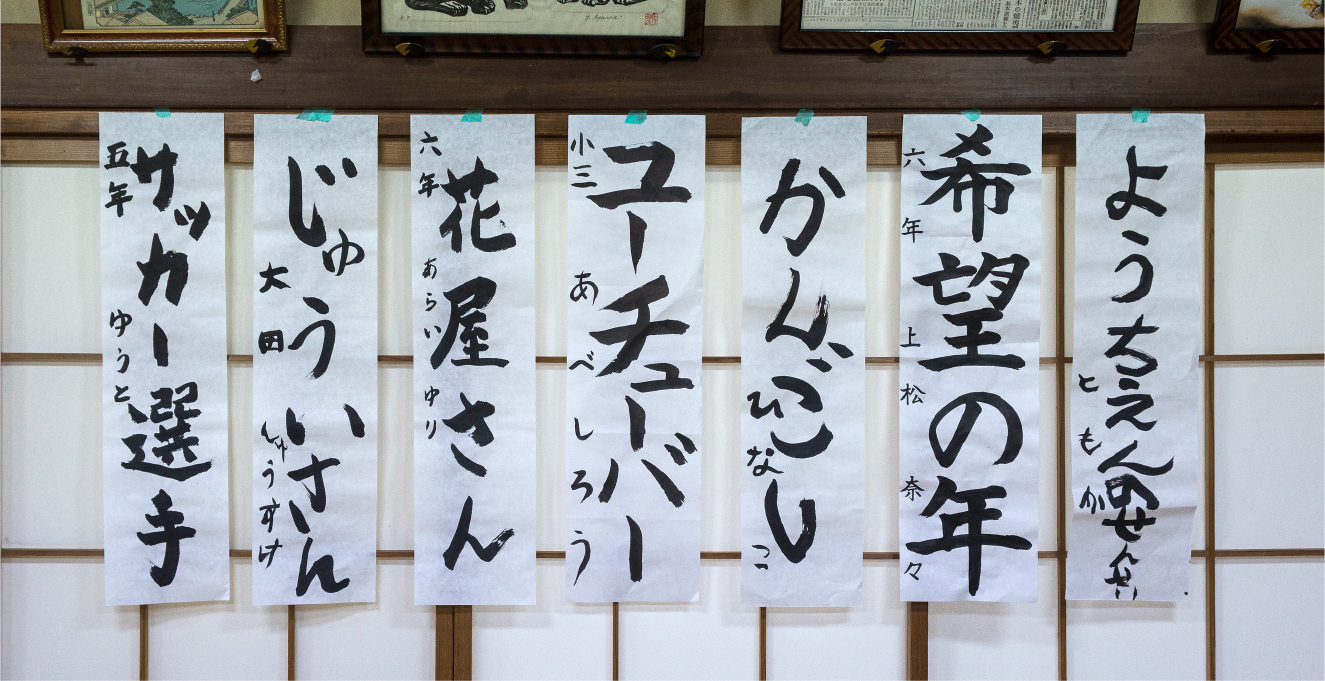 ようちえんのせんせい
ともか
希望の年
六年 上松奈々
かんごし
ひなこ
ユーチューバー
小三 あべしろう
花屋さん
六年 あらいゆり
じゅういさん
大田しゅうすけ
サッカー選手
五年 ゆうと